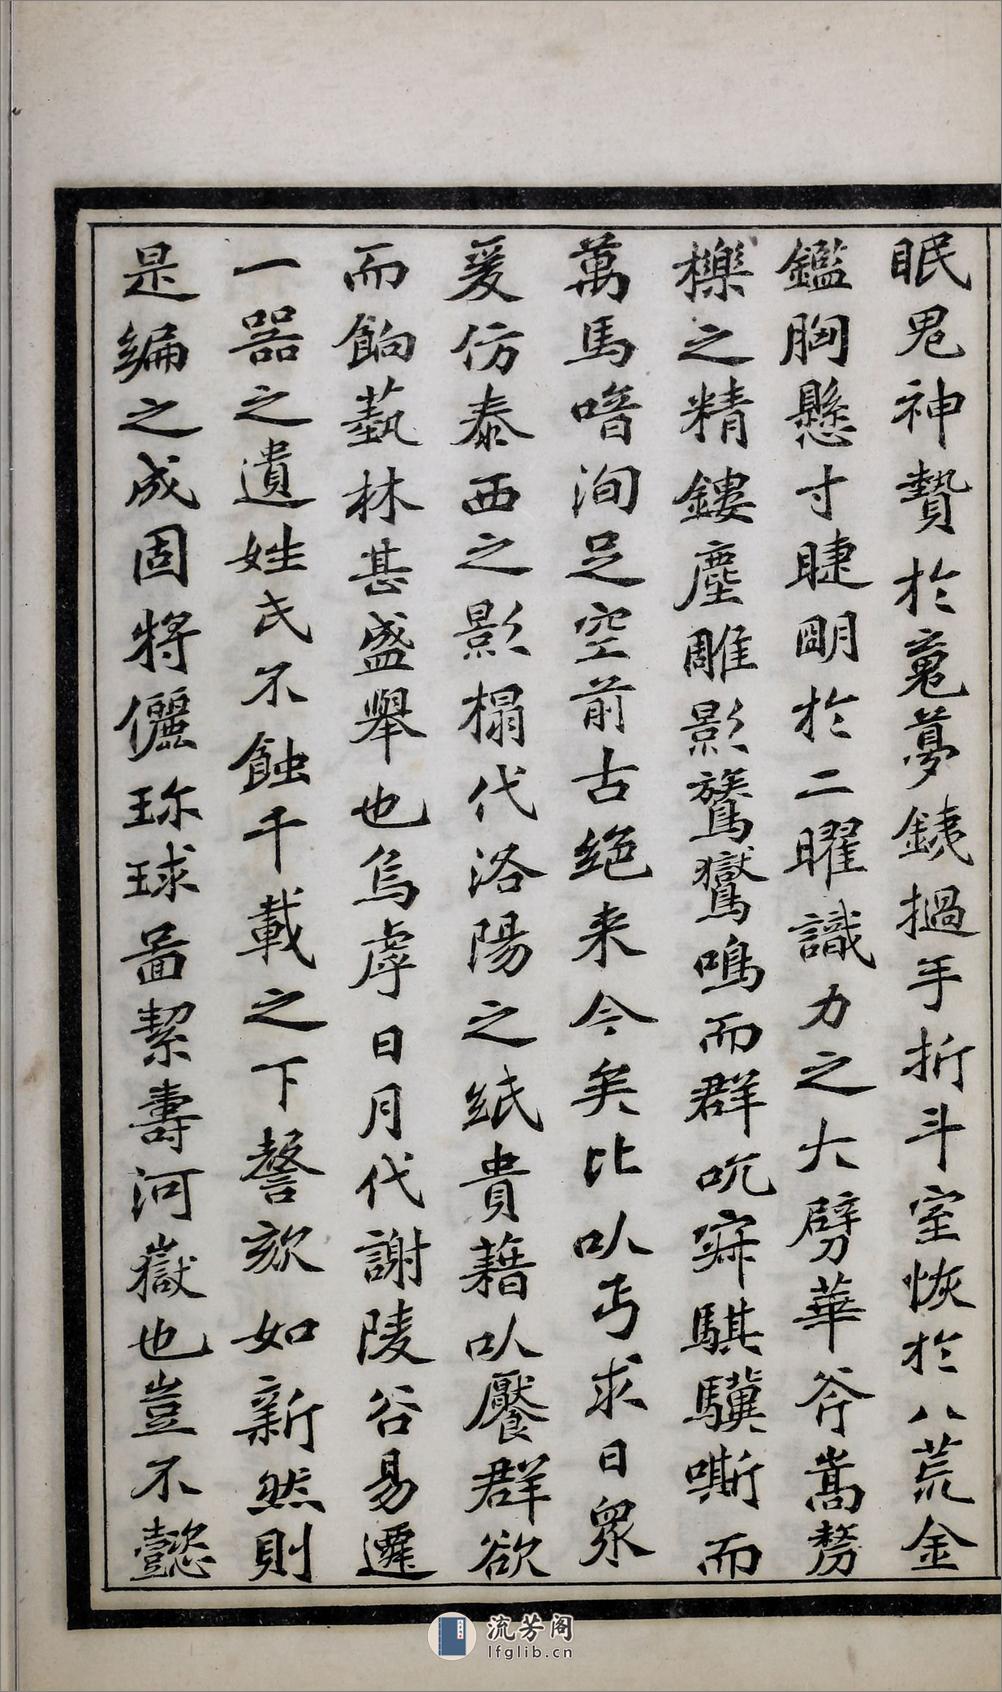 眠鬼神贊於竁夢銕撾手折斗室恢於八荒金
鑑胸懸寸睫朙於二曜識力之大劈華斧嵩剺
櫟之精鏤塵雕影鷟鸑鳴而群吭寂騏驥嘶而
萬馬喑洵足空前古絕来今矣比㕥丐求日眾
爰仿泰西之影榻代洛陽之紙貴藉㕥饜群欲
而餉藝林甚盛舉也烏虖日月代謝陵谷易遷
一器之遺姓氏不蝕千載之下謦欬如新然則
是編之成固將儷珎球啚絜壽河嶽也豈不懿
流芳阁
lfglib.cn